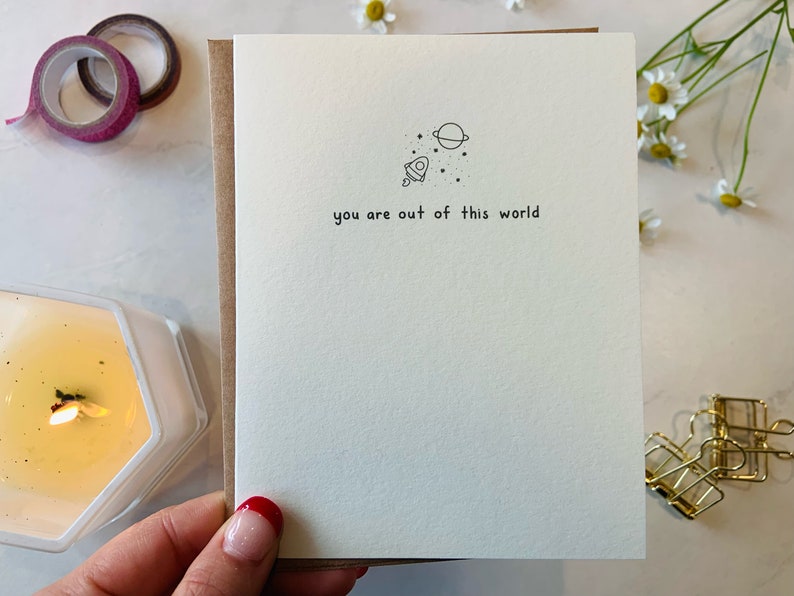 you are out of this world